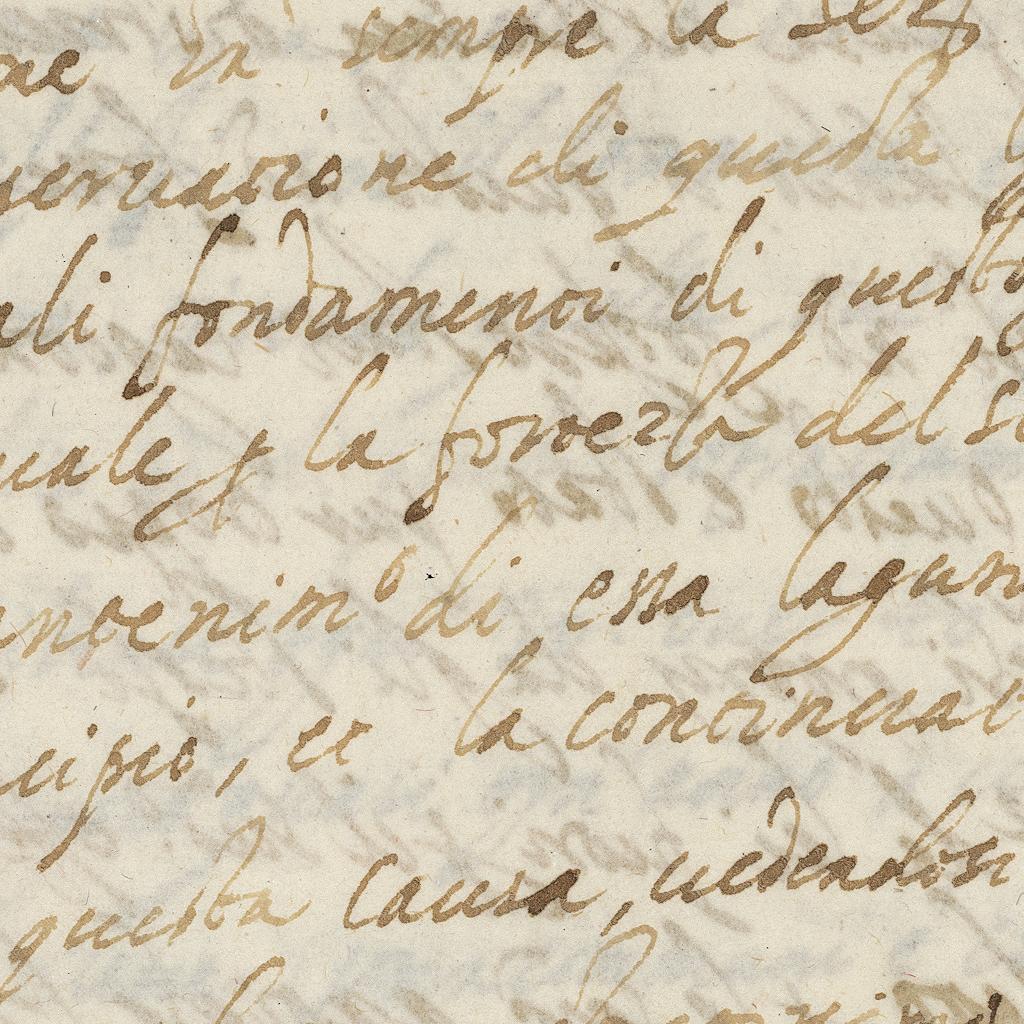 ne in sempre la
servatione di questa
ali fondamenti di questa
uale p la fortezza del s
ntenim.o di essa lagun
cipio, et la continuat
questa causa, uedendosi